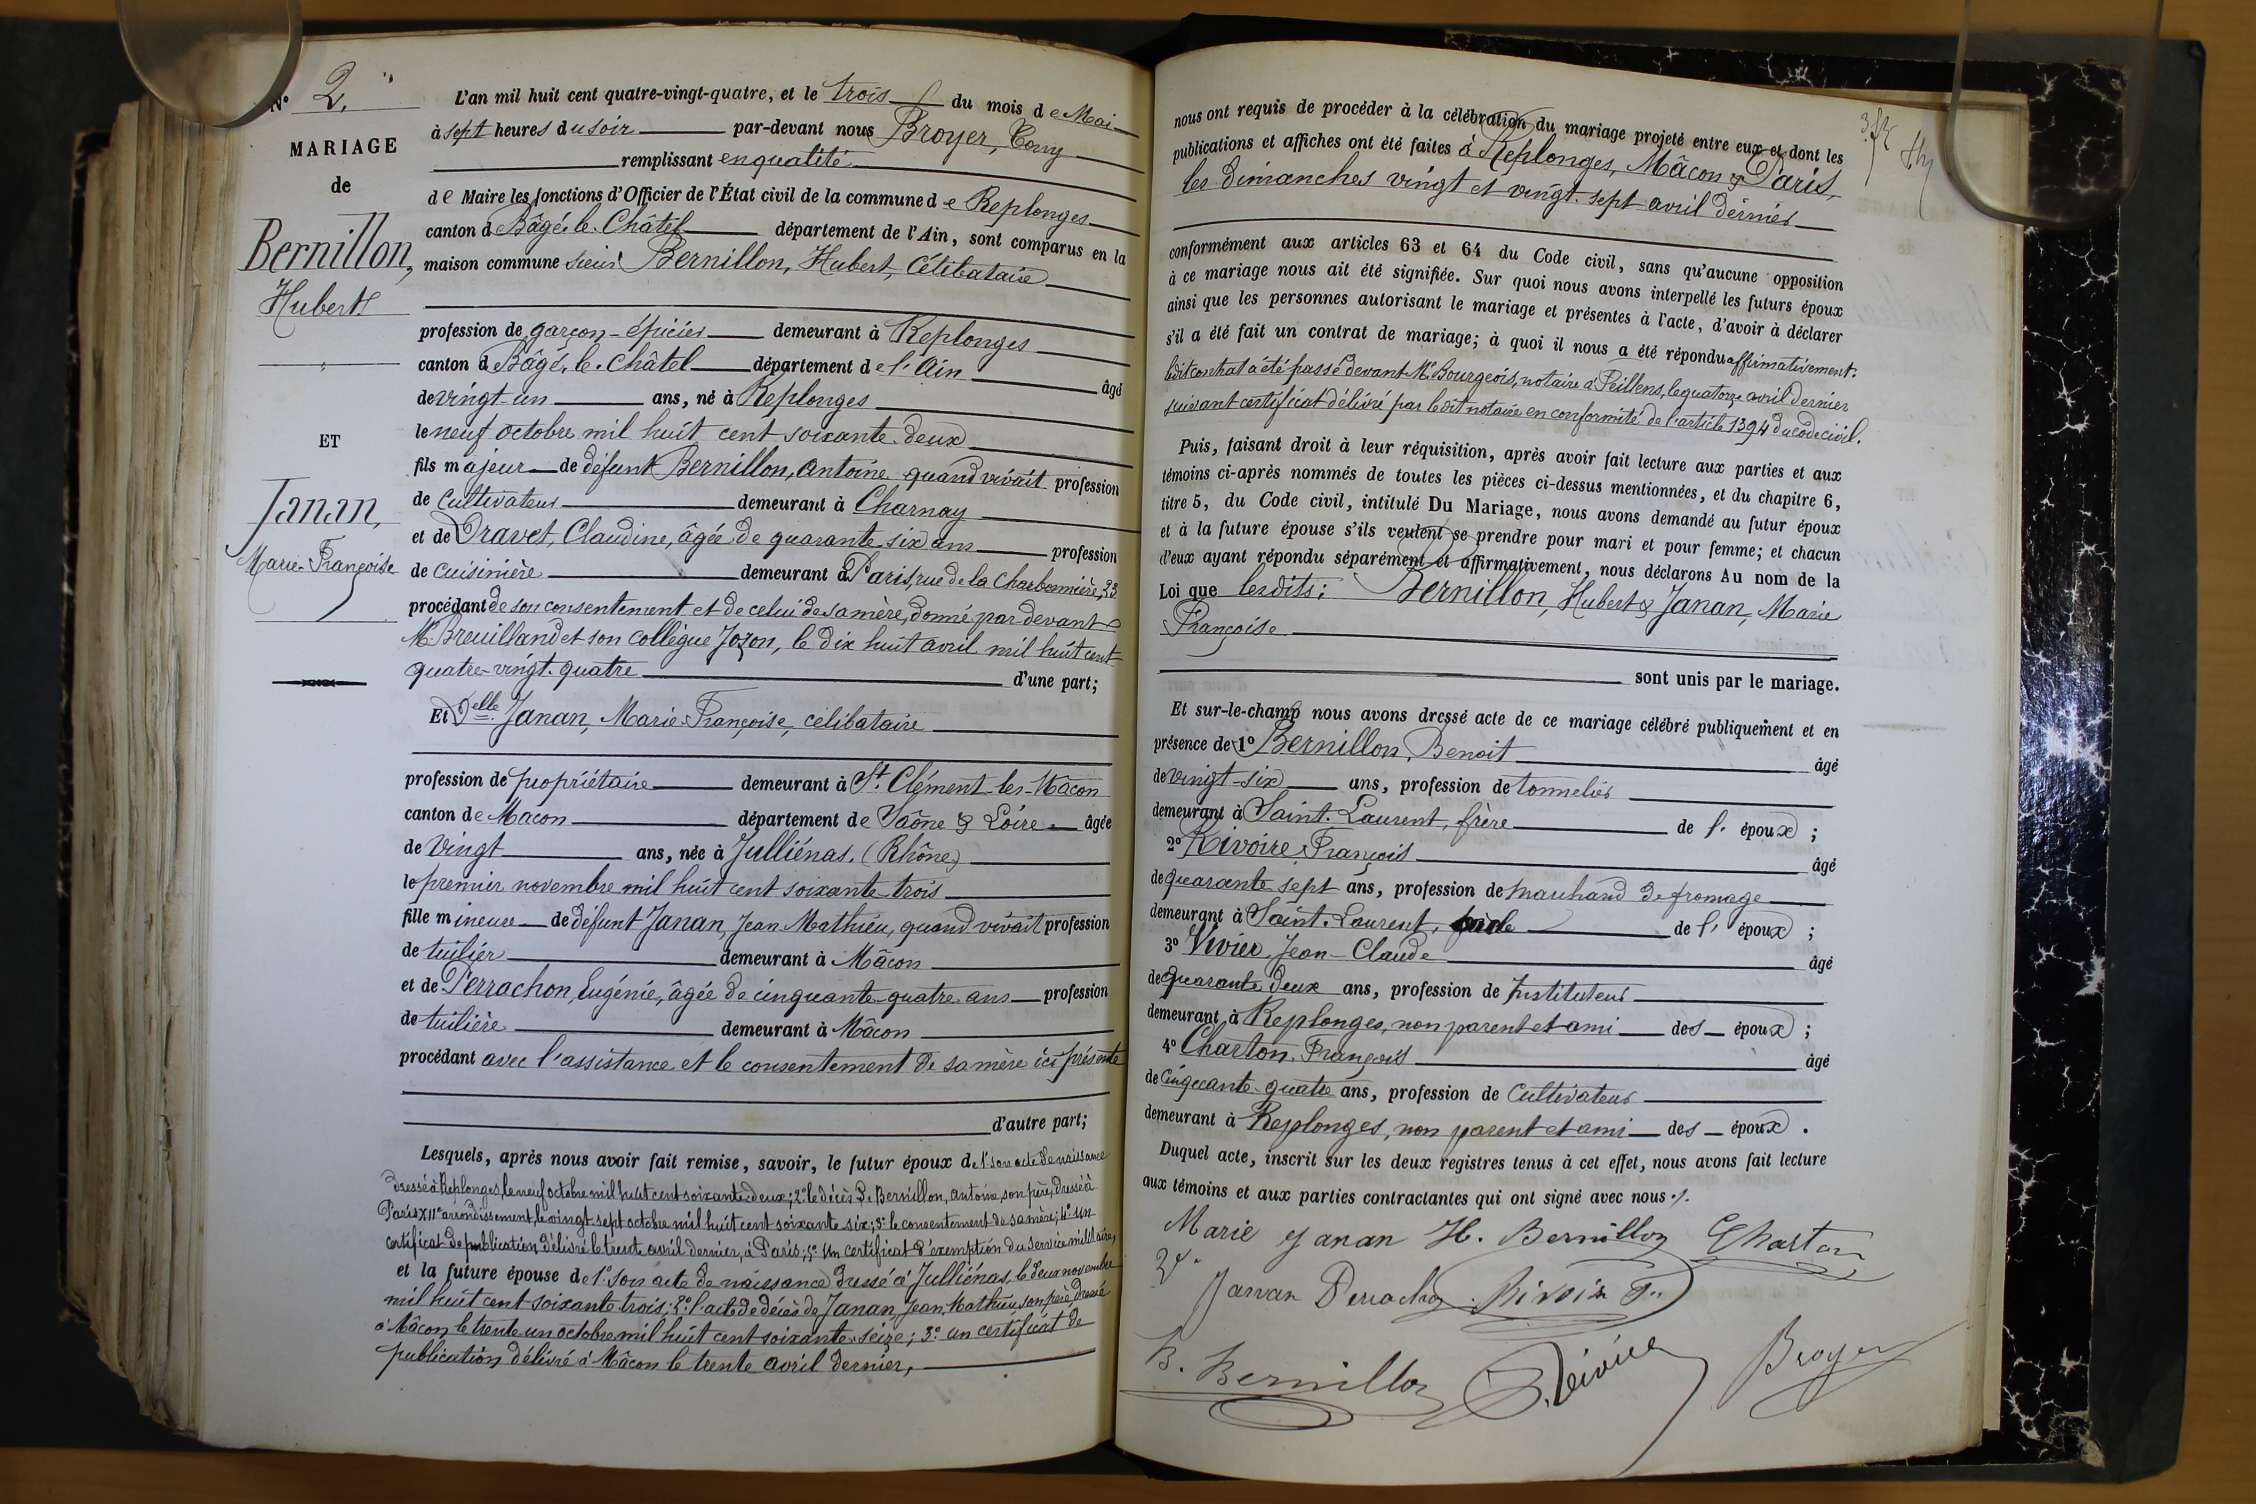 N° 2.
MARIAGE
de
Bernillon,
Hubert
ET
Janan,
Marie-Françoise
L'an mil huit cent quatre-vingt-quatre, et le trois du mois de Mai
à sept heures du soir par-devant nous Broyer, Tony
remplissant en qualité
de Maire les fonctions d'Officier de l'État civil de la commune de Replonges
canton d Bâgé-le-Châtel département de l'Ain, sont comparus en la
maison commune sieur Bernillon, Hubert, célibataire
profession de garçon-épicier demeurant à Replonges
canton d Bâgé-le-Châtel département de l'Ain âgé
de vingt-un ans, né à Replonges
le neuf octobre mil huit cent soixante-deux
fils majeur de défunt Bernillon, Antoine quand vivait profession
de cultivateur demeurant à Charnay
et de Dravet, Claudine, âgée de quarante-six ans profession
de cuisinière demeurant à Paris, rue de la Charbonnière, 33
procédant de son consentement et de celui de sa mère, donné par-devant
M. Breuilland et son collègue Jozon, le dix huit avril mil huit cent
quatre-vingt-quatre d'une part;
Et Delle Janan, Marie-Françoise, célibataire
profession de propriétaire demeurant à St. Clément-les-Mâcon
canton de Macon département de Saône & Loire âgée
de vingt ans, née à Julliénas. (Rhône)
le premier novembre mil huit cent soixante-trois
fille mineure de défunt Janan, Jean Mathieu, quand vivait profession
de tuilier demeurant à Mâcon
et de Perrachon, Eugénie, âgée de cinquante-quatre ans profession
de tuilière demeurant à Mâcon
procédant avec l'assistance et le consentement de sa mère ici présente
d'autre part;
Lesquels, après nous avoir fait remise, savoir, le futur époux de 1° son acte de naissance
dressé à Replonges, le neuf octobre mil huit cent soixante-deux; 2° le décès de Bernillon, Antoine, son père, dressé à
Paris XIIe arrondissement, le vingt sept octobre mil huit cent soixante six; 3° le consentement de sa mère; 4° un
certificat de publication délivré le trente avril dernier, à Paris; 5° un certificat d'exemption du service militaire,
et la future épouse de 1° son acte de naissance dressé à Julliénas, le deux novembre
mil huit cent soixante trois; 2° l'acte de décès de Janan, Jean Mathieu son père, dressé
à Mâcon le trente un octobre mil huit cent soixante-seize; 3° un certificat de
publication délivré à Mâcon le trente avril dernier,
nous ont requis de procéder à la célébration du mariage projeté entre eux et dont les
publications et affiches ont été faites à Replonges, Mâcon & Paris,
les dimanches vingt et vingt-sept avril dernier
conformément aux articles 63 et 64 du Code civil, sans qu'aucune opposition
à ce mariage nous ait été signifiée. Sur quoi nous avons interpellé les futurs époux
ainsi que les personnes autorisant le mariage et présentes à l'acte, d'avoir à déclarer
s'il a été fait un contrat de mariage; à quoi il nous a été répondu affirmativement.
Ledit contrat a été passé devant Me Bourgeois, notaire à Feillens, le quatorze avril dernier
suivant certificat délivré par ledit notaire en conformité de l'article 1394 du code civil.
Puis, faisant droit à leur réquisition, après avoir fait lecture aux parties et aux
témoins ci-après nommés de toutes les pièces ci-dessus mentionnées, et du chapitre 6,
titre 5, du Code civil, intitulé Du Mariage, nous avons demandé au futur époux
et à la future épouse s'ils veulent se prendre pour mari et pour femme; et chacun
d'eux ayant répondu séparément et affirmativement, nous déclarons Au nom de la
Loi que lesdits: Bernillon, Hubert & Janan, Marie
Françoise
sont unis par le mariage.
Et sur-le-champ nous avons dressé acte de ce mariage célébré publiquement et en
présence de 1° Bernillon, Benoit âgé
de vingt-six ans, profession de tonnelier
demeurant à Saint-Laurent, frère de l'époux;
2° Rivoire, François âgé
de quarante sept ans, profession de marchand de fromage
demeurant à Saint-Laurent, de l'époux;
3° Vivier, Jean-Claude âgé
de quarante deux ans, profession de Instituteur
demeurant à Replonges, non parent et ami des époux;
4° Charton, François âgé
de cinquante-quatre ans, profession de cultivateur
demeurant à Replonges, non parent et ami des époux.
Duquel acte, inscrit sur les deux registres tenus à cet effet, nous avons fait lecture
aux témoins et aux parties contractantes qui ont signé avec nous.
Marie Janan H. Bernillon Charton
Janan Perrachon Rivoire F.
B. Bernillon Vivier Broyer